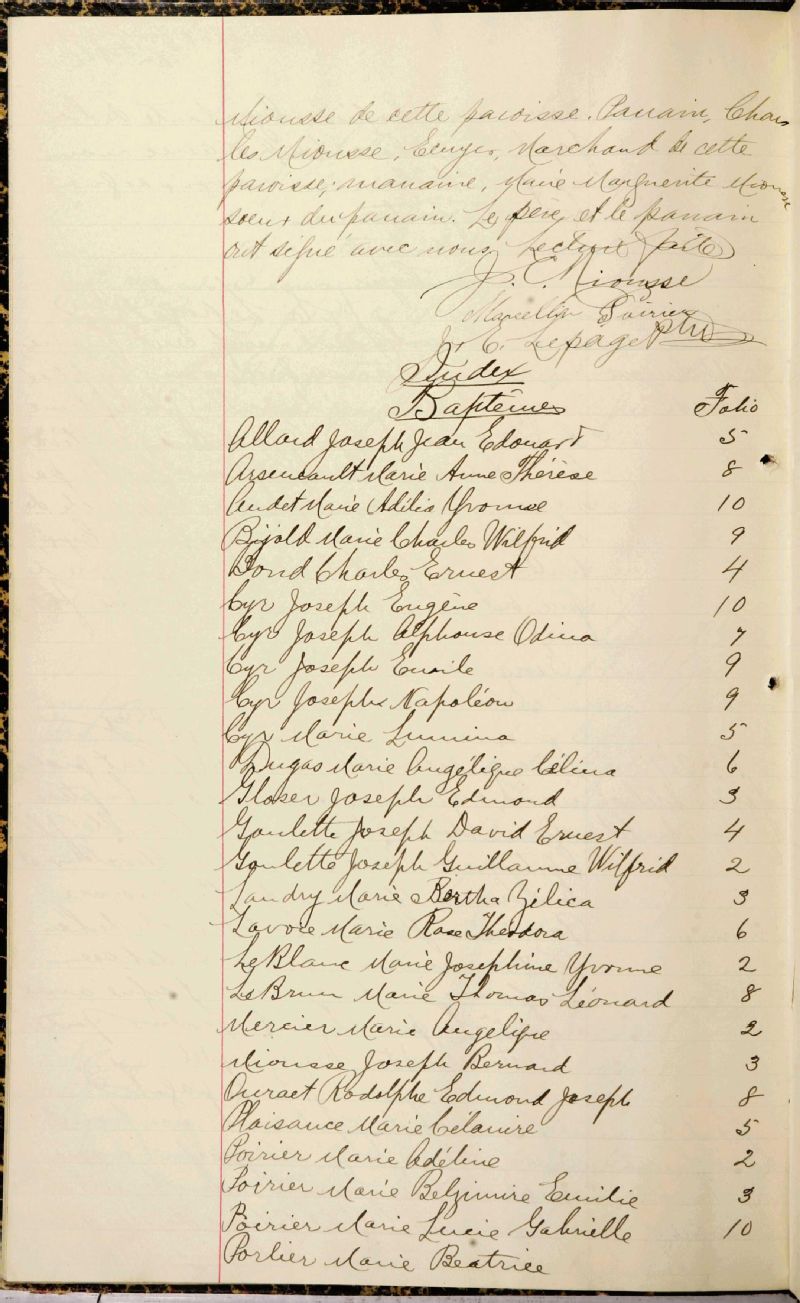 Miousse de cette paroisse. Parrain, Char
les Miousse, Ecuyer, Marchand de cette
paroisse; marraine, Marie Marguerite Miousse
soeur du parrain. Le père et le parrain
ont signé avec nous. Lecture faite
J. C. Miousse
Marcellin Poirier
J. E. Lepage Ptre
Index
Baptêmes Folio
Allard Joseph Jean Edouard 5
Arseneault Marie Anne Thérèse 8
Audet Marie Adélia Yvonne 10
Bujold Marie Charles Wilfrid 9
Bond Charles Ernest 4
Cyr Joseph Eugène 10
Cyr Joseph Alphonse Odina 7
Cyr Joseph Emile 9
Cyr Joseph Napoléon 9
Cyr Marie Lumina 5
Dugas Marie Angélique Célina 6
Gloser Joseph Edmond 3
Goulette Joseph David Ernest 4
Goulette Joseph Guillaume Wilfrid 2
Landry Marie Bertha Zélica 3
Lavoie Marie Rose Theodora 6
LeBlanc Marie Josephine Yvonne 2
LeBrun Marie Thomas Léonard 8
Mercier Marie Angelique 2
Miousse Joseph Bernard 3
Rodolphe Edmond Joseph 8
Plaisance Marie Célanire 5
Poirier Marie Adéline 2
Poirier Marie Belzimire Emilie 3
Poirier Marie Lucie Gabrielle 10
Porlier Marie Beatrice